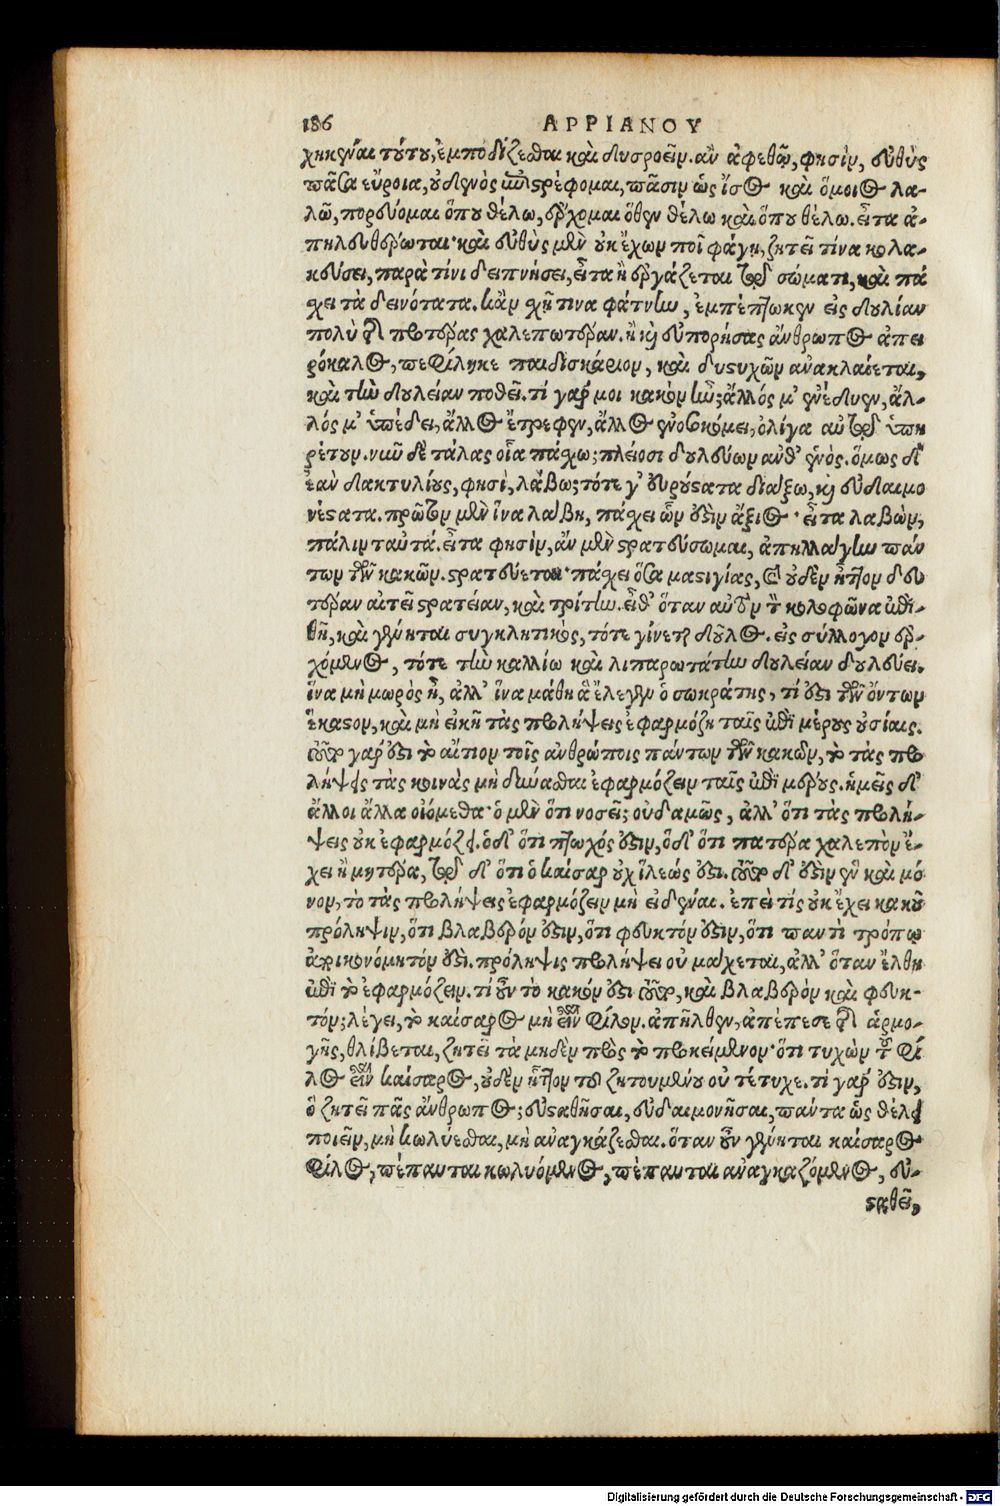 186 ΑΡΡΙΑΝΟΥ
χηκέναι τούτου, ἐμποδίζεσθαι καὶ δυσροεῖν. ἂν ἀφεθῶ, φησὶν, εὐθὺς
πᾶσα εὔροια, οὐδενὸς ἐπιστρέφομαι, πᾶσιν ὡς ἴσος καὶ ὅμοιος λα-
λῶ, πορεύομαι ὅπου θέλω, ἔρχομαι ὅθεν θέλω καὶ ὅπου θέλω. εἶτα ἀ-
πηλευθέρωται· καὶ εὐθὺς μὲν οὐκ ἔχων ποῖ φάγῃ, ζητεῖ τίνα κολα-
κεύσει, παρὰ τίνι δειπνήσει, εἶτα ἢ ἐργάζεται τῷ σώματι, καὶ πά
χει τὰ δεινότατα. κἂν χῇ τινα φάτνην, ἐμπέπτωκεν εἰς δουλίαν
πολὺ τῆς προτέρας χαλεπωτέραν. ἢ καὶ εὐπορήσας ἄνθρωπος ἀπει
ρόκαλος, πεφίληκε παιδισκάριον, καὶ δυστυχῶν ἀνακλαίεται,
καὶ τὴν δουλείαν ποθεῖ. τί γάρ μοι κακὸν ἦν; ἄλλός μ' ἐνέδυεν, ἄλ-
λός μ' ὑπέδει, ἄλλος ἔτρεφεν, ἄλλος ἐνοσκόμει, ὀλίγα αὐτῷ ὑπη
ρέτουν. νῦν δὲ τάλας οἷα πάσχω; πλείοσι δουλεύων ἀνθ' ἑνός. ὅμως δ'
ἐὰν δακτυλίους, φησὶ, λάβω; τότε γ' εὐρούστατα διάξω, καὶ εὐδαιμο
νέστατα. πρῶτον μὲν ἵνα λάβῃ, πάσχει ὧν ἐστὶν ἄξιος· εἶτα λαβὼν,
πάλιν ταὐτά. εἶτα φησὶν, ἂν μὲν στρατεύσωμαι, ἀπηλλάγην πάν
των τῶν κακῶν. στρατεύεται· πάσχει ὅσα μαστιγίας, καὶ οὐδὲν ἧττον δευ
τέραν αἰτεῖ στρατείαν, καὶ τρίτην. εἶθ' ὅταν αὐτὸν τὸν κολοφῶνα ἐπι-
θῇ, καὶ γένηται συγκλητικὸς, τότε γίνεται δοῦλος. εἰς σύλλογον ἐρ-
χόμενος, τότε τὴν καλλίω καὶ λιπαρωτάτην δουλείαν δουλεύει.
ἵνα μὴ μωρὸς ᾖ, ἀλλ' ἵνα μάθῃ ἃ ἔλεγεν ὁ σωκράτης, τί ἐστι τῶν ὄντων
ἕκαστον, καὶ μὴ εἰκῇ τὰς προλήψεις ἐφαρμόζῃ ταῖς ἐπὶ μέρους οὐσίαις.
τοῦτο γάρ ἐστι τὸ αἴτιον τοῖς ἀνθρώποις πάντων τῶν κακῶν, τὸ τὰς προ
λήψεις τὰς κοινὰς μὴ δύνασθαι ἐφαρμόζειν ταῖς ἐπὶ μέρους. ἡμεῖς δ'
ἄλλοι ἄλλα οἰόμεθα· ὁ μὲν ὅτι νοσεῖ; οὐδαμῶς, ἀλλ' ὅτι τὰς προλή-
ψεις οὐκ ἐφαρμόζει. ὁ δ' ὅτι πτωχός ἐστιν, ὁ δ' ὅτι πατέρα χαλεπὸν ἔ-
χει ἢ μητέρα, τῷ δ' ὅτι ὁ καίσαρ οὐχ ἵλεώς ἐστι. τοῦτο δ' ἐστὶν ἓν καὶ μό
νον, τὸ τὰς προλήψεις ἐφαρμόζειν μὴ εἰδέναι. ἐπεὶ τίς οὐκ ἔχει κακοῦ
πρόληψιν, ὅτι βλαβερόν ἐστιν, ὅτι φευκτόν ἐστιν, ὅτι παντὶ τρόπῳ
ἀποικονόμητόν ἐστι. πρόληψις προλήψει οὐ μάχεται, ἀλλ' ὅταν ἔλθῃ
ἐπὶ τὸ ἐφαρμόζειν. τί οὖν τὸ κακόν ἐστι τοῦτο, καὶ βλαβερὸν καὶ φευκ-
τόν; λέγει, τὸ καίσαρος μὴ εἶναι φίλον. ἀπῆλθεν, ἀπέπεσε τῆς ἁρμο-
γῆς, θλίβεται, ζητεῖ τὰ μηδὲν πρὸς τὸ προκείμενον· ὅτι τυχὼν τοῦ φί
λος εἶναι καίσαρος, οὐδὲν ἧττον τοῦ ζητουμένου οὐ τέτυχε. τί γάρ ἐστιν,
ὃ ζητεῖ πᾶς ἄνθρωπος; εὐσταθῆσαι, εὐδαιμονῆσαι, πάντα ὡς θέλει
ποιεῖν, μὴ κωλύεσθαι, μὴ ἀναγκάζεσθαι. ὅταν οὖν γένηται καίσαρος
φίλος, πέπαυται κωλυόμενος, πέπαυται ἀναγκαζόμενος, εὐ-
σταθεῖ,
Digitalisierung gefördert durch die Deutsche Forschungsgemeinschaft - DFG